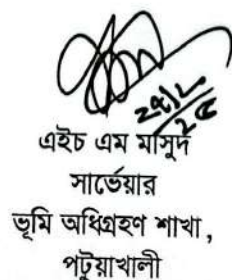 ২৭/২/২৫
এইচ এম মাসুদ
সার্ভেয়ার
ভূমি অধিগ্রহণ শাখা,
পটুয়াখালী